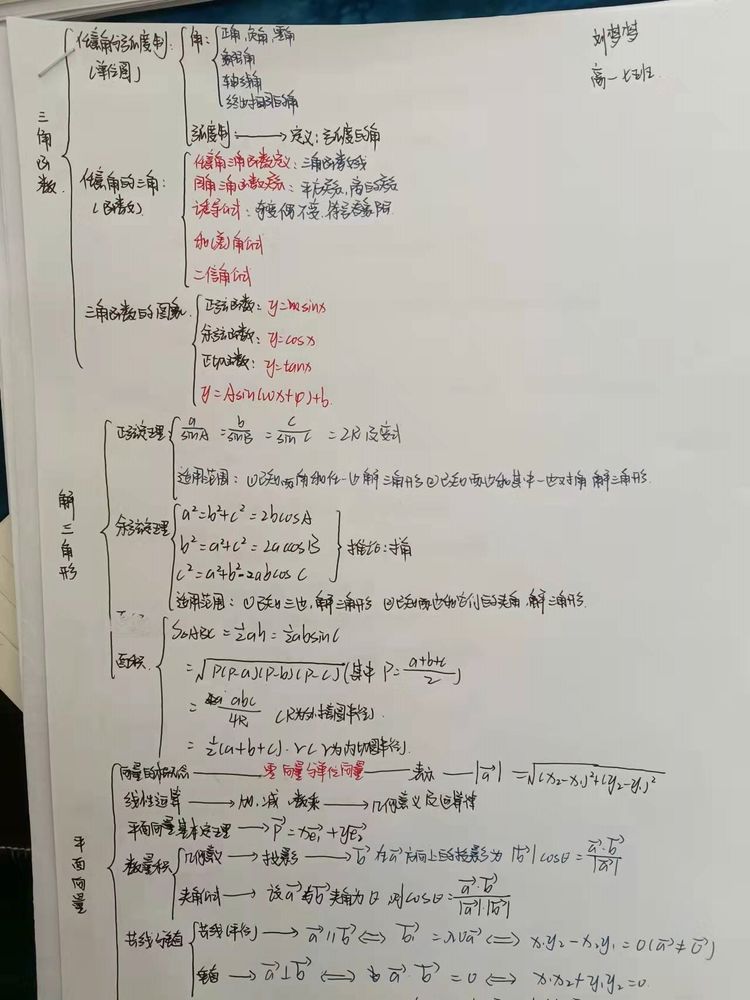 刘梦梦
高一七班
三角函数
任意角与弧度制:
(单位圆)
角:
正角,负角,零角
象限角
轴线角
终边相同的角
弧度制 → 定义:1弧度的角
任意角的三角:
(函数)
任意角三角函数定义:三角函数线
同角三角函数关系:平方关系,商的关系
诱导公式:奇变偶不变,符号看象限
和(差)角公式
二倍角公式
三角函数的图象
正弦函数: y=sinx
余弦函数: y=cosx
正切函数: y=tanx
y=Asin(ωx+φ)+b.
解三角形
正弦定理
a/sinA = b/sinB = c/sinC = 2R 及变式
适用范围: ①已知两角和任一边解三角形②已知两边和其中一边对角,解三角形.
余弦定理
a²=b²+c²=2bcosA
b²=a²+c²=2acosB
c²=a²+b²-2abcosC
推论:求角
适用范围: ①已知三边,解三角形 ②已知两边和它们的夹角,解三角形.
面积
S△ABC=½ah=½absinC
=√P(P-a)(P-b)(P-c) (其中 P=(a+b+c)/2)
= abc/4R (R为外接圆半径).
= ½(a+b+c)·r(r为内切圆半径).
平面向量
向量的概念 — 零向量与单位向量 — 表示 — |a⃗| =√(x₂-x₁)²+(y₂-y₁)²
线性运算 → 加,减,数乘 → 几何意义及运算律
平面向量基本定理 → P⃗=xe₁⃗+ye₂⃗
数量积
几何意义 → 投影 → b⃗在a⃗方向上的投影为 |b⃗|cosθ= a⃗·b⃗/|a⃗|
夹角公式 → 设a⃗与b⃗夹角为θ,则cosθ= a⃗·b⃗/|a⃗|·|b⃗|
共线(平行) → a⃗∥b⃗ ⟺ b⃗=λa⃗ ⟺ x₁y₂-x₂y₁=0(a⃗≠0⃗)
垂直 → a⃗⊥b⃗ ⟺ a⃗·b⃗=0 ⟺ x₁x₂+y₁y₂=0